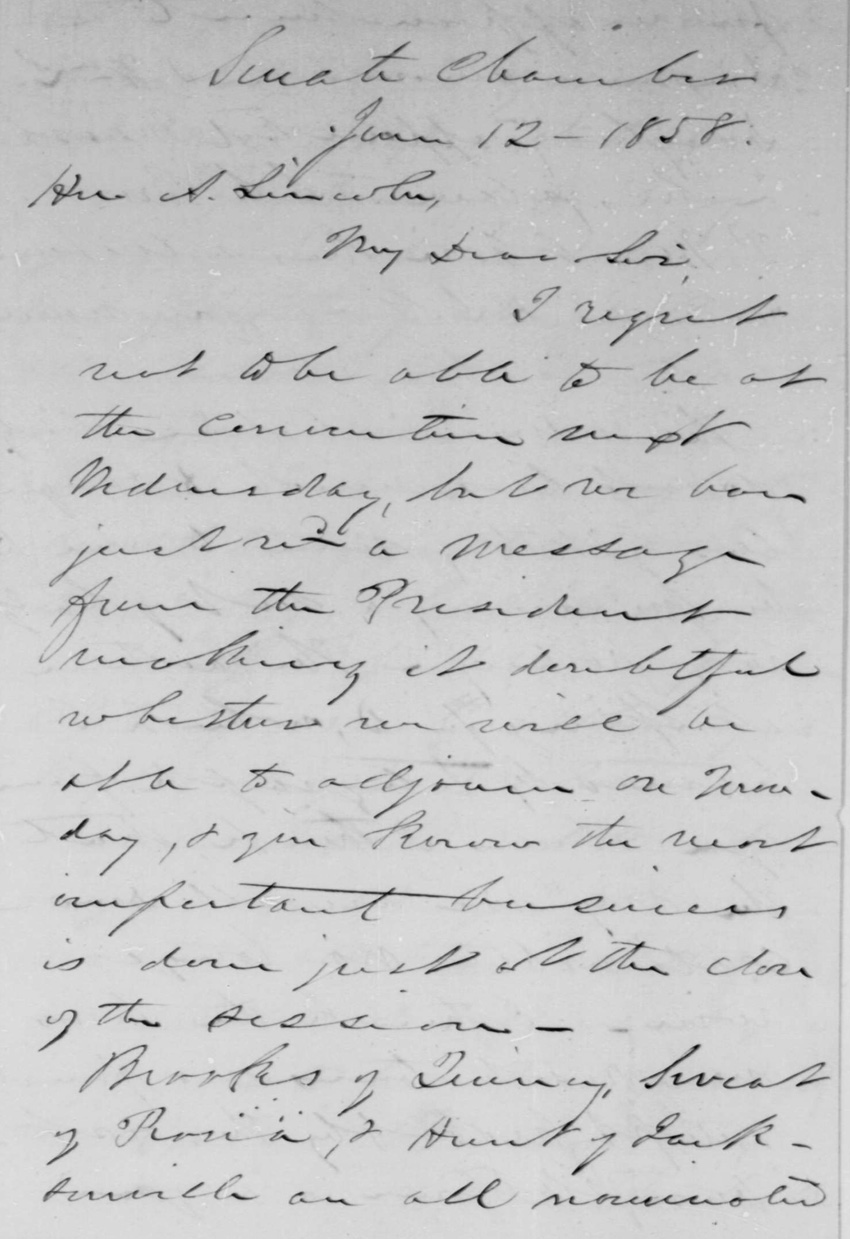 Senate Chamber
June 12 - 1858.
Hon A. Lincoln,
My Dear Sir,
I regret
not to be able to be at
the convention next
Wednesday, but we have
just recd a message
from the President
making it doubtful
whether we will be
able to adjourn on Mon-
day, & you know the most
important business
is done just at the close
of the session -
Brooks of Quincy, Sweat
of Peoria, & Hunt of Jack-
sonville are all nominated